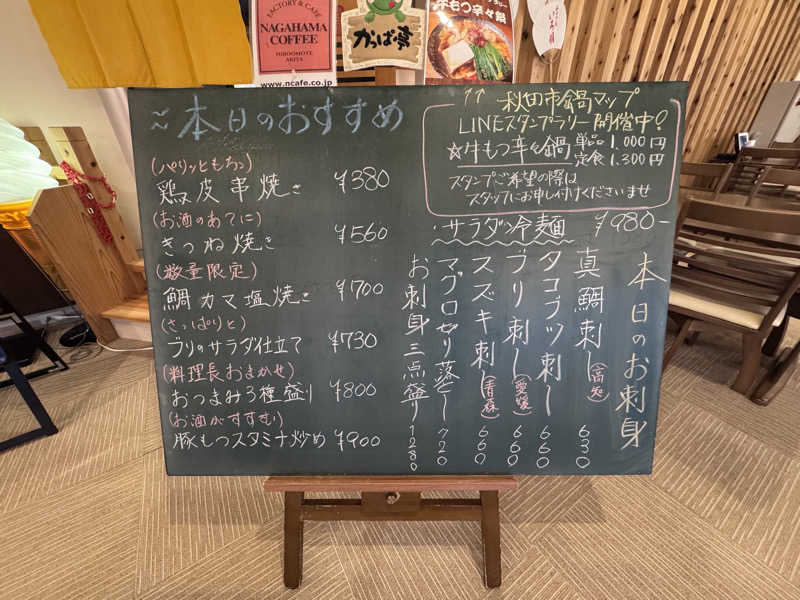 FACTORY & CAFE
NAGAHAMA
COFFEE
HIROOMOTE
AKITA
www.ncafe.co.jp
かっぱ亭
牛もつ辛々鍋
~本日のおすすめ
(パリッともちっ)
鶏皮串焼き ¥380
(お酒のあてに)
きつね焼き ¥560
(数量限定)
鯛カマ塩焼き ¥700
(さっぱりと)
ブリのサラダ仕立て ¥730
(料理長おまかせ)
おつまみ3種盛り ¥800
(お酒がすすむ)
豚もつスタミナ炒め ¥900
↑↑ 秋田市鍋マップ
LINEスタンプラリー開催中!
☆牛もつ辛々鍋 単品1.000円
定食1.300円
スタンプご希望の際は
スタッフにお申し付けくださいませ
・サラダ冷麺 ¥980-
本日のお刺身
真鯛刺し(高知) 630
タコブツ刺し 660
ブリ刺し(愛媛) 660
スズキ刺(青森) 660
マグロぜり落とし 720
お刺身三点盛り 1280